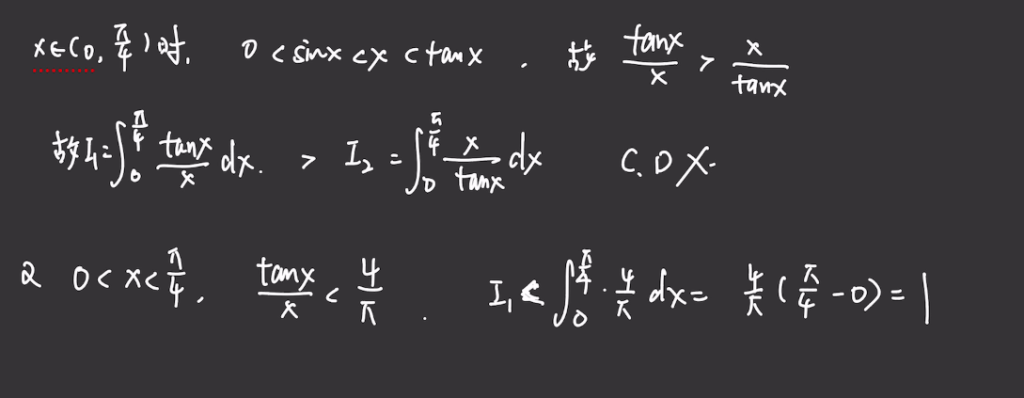 x∈(0, π/4)时, 0 < sinx < x < tanx . 故 tanx/x > x/tanx
故I₁=∫₀^(π/4) tanx/x dx. > I₂ = ∫₀^(π/4) x/tanx dx C. D X.
2 0 < x < π/4, tanx/x < 4/π . I₁ < ∫₀^(π/4) · 4/π dx = 4/π (π/4 - 0) = 1